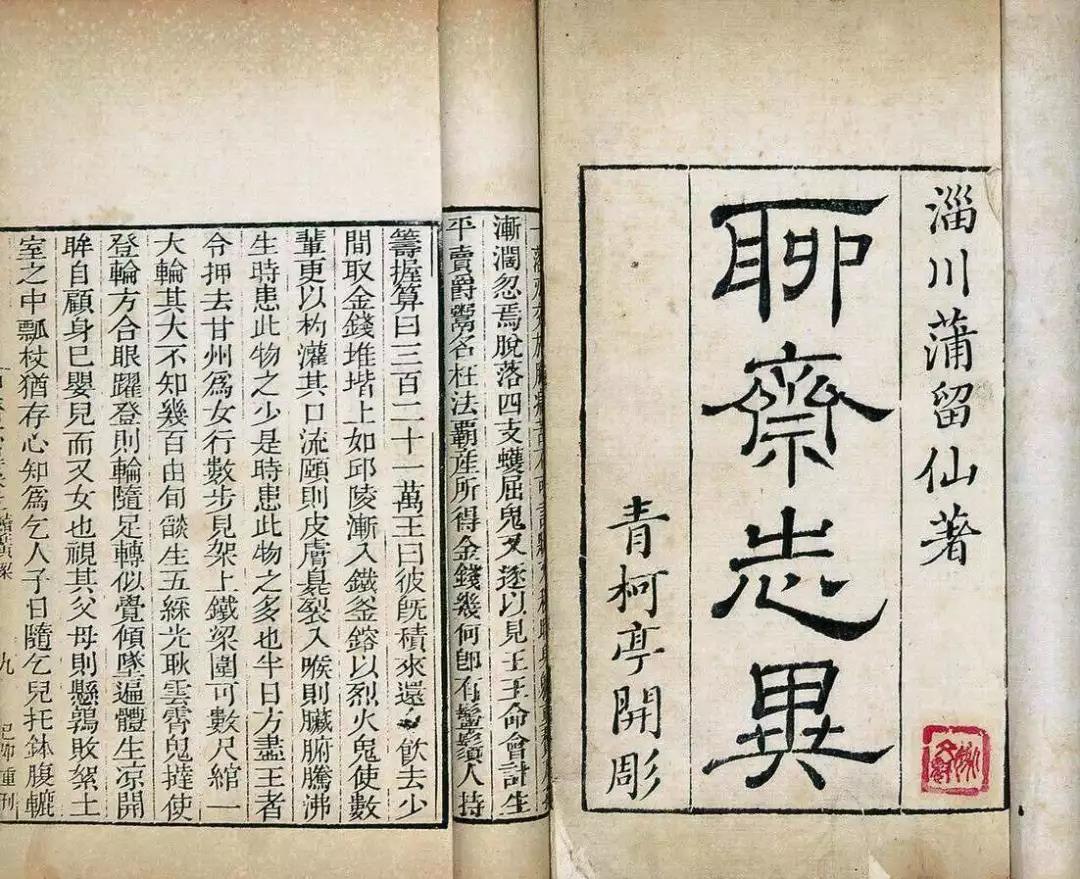 淄川蒲留仙著
聊齋志異
青柯亭開彫
漸濶忽焉脫落四支蠖屈鬼又逐以見王王命會計生
平賣爵鬻名枉法覇產所得金錢幾何卽有鬡鬚人持
籌握算曰三百二十一萬王曰彼旣積來還
飮去少
間取金錢堆堦上如邱陵漸入鐵釜鎔以烈火鬼使數
輩更以杓灌其口流頤則皮膚臭裂入喉則臟腑騰沸
生時患此物之少是時患此物之多也半日方盡王者
令押去甘州爲女行數步見架上鐵梁圍可數尺綰一
大輪其大不知幾百由旬燄生五綵光耿雲霄鬼撻使
登輪方合眼躍登則輪隨足轉似覺傾墜遍體生凉開
眸自顧身已嬰兒而又女也視其父母則懸鶉敗絮土
室之中瓢杖猶存心知爲乞人子日隨乞兒托鉢腹轆
九